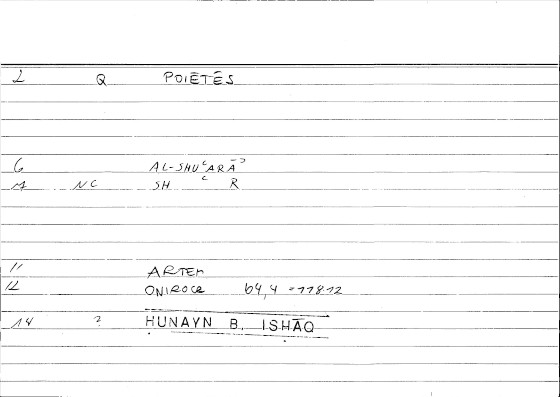 1 Q POIĒTĒS
6 AL-SHUʿARĀʾ
M NC SH ʿ R
11 ARTEM
12 ONIROCR 64,4 = 118.12
14 ? ḤUNAYN B. ISḤĀQ